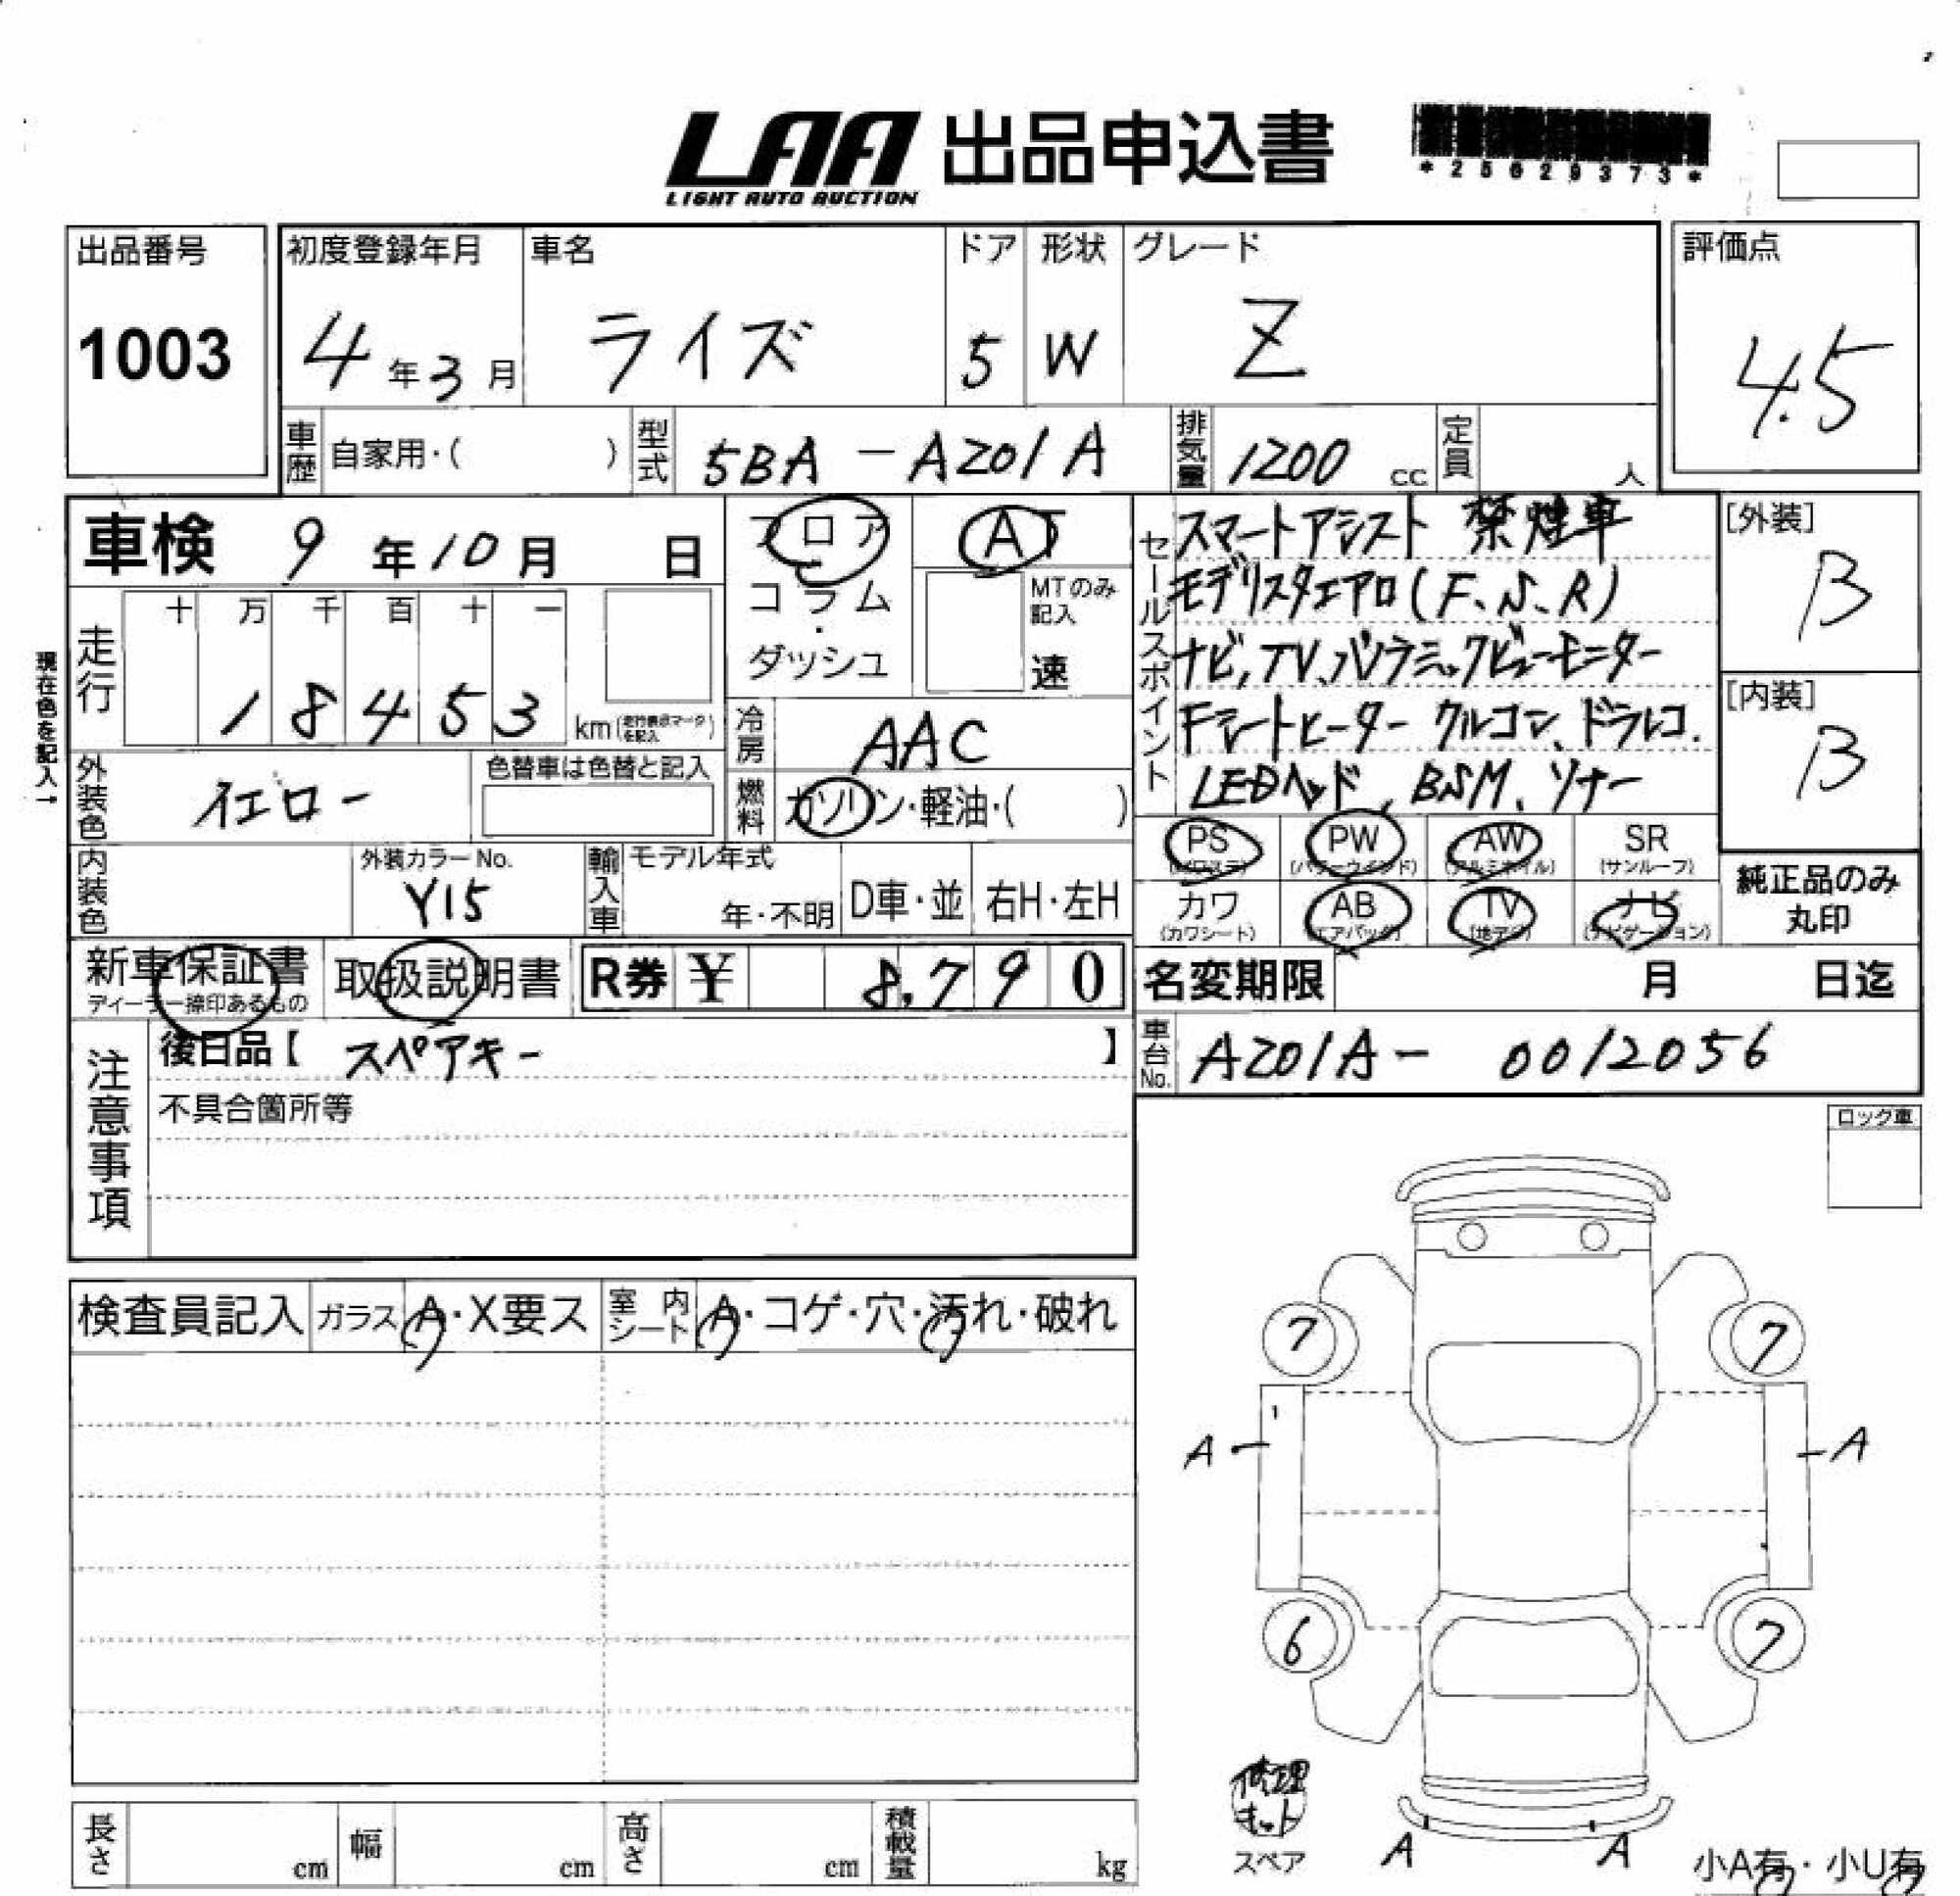 LAA 出品申込書
LIGHT AUTO AUCTION
*25629373*
出品番号
1003
初度登録年月
4年3月
車名
ライズ
ドア
5
形状
W
グレード
Z
評価点
4.5
車歴 自家用・( )
型式 5BA-A201A
排気量 1200 cc
定員 人
車検 9年10月 日
フロア
コラム
・
ダッシュ
AT
MTのみ
記入
速
現在色を記入→
走行
十 万 千 百 十 一
1 8 4 5 3 km(走行表示マークを記入)
冷房 AAC
燃料 ガソリン・軽油・( )
外装色 イエロー
色替車は色替と記入
内装色
外装カラーNo.
Y15
輸入車
モデル年式
年・不明
D車・並
右H・左H
セールスポイント
スマートアシスト 禁煙車
モデリスタエアロ(F、S、R)
ナビ,TV、パノラミックビューモニター
Fシートヒーター クルコン、ドラレコ.
LEDヘッド、BSM、ソナー
[外装]
B
[内装]
B
PS
(パワステ)
PW
(パワーウインド)
AW
(アルミホイル)
SR
(サンルーフ)
カワ
(カワシート)
AB
(エアバッグ)
TV
(地デジ)
ナビ
(ナビゲーション)
純正品のみ
丸印
新車保証書
ディーラー捺印あるもの
取扱説明書
R券 ¥ 8,790
名変期限 月 日迄
車台No. A201A- 0012056
注意事項
後日品【 スペアキー 】
不具合箇所等
ロック車
検査員記入
ガラス A・X要ス
室内シート A・コゲ・穴・汚れ・破れ
7
7
A
A
6
7
修理
キット
スペア
A
A
小A有・小U有
長さ cm
幅 cm
高さ cm
積載量 kg